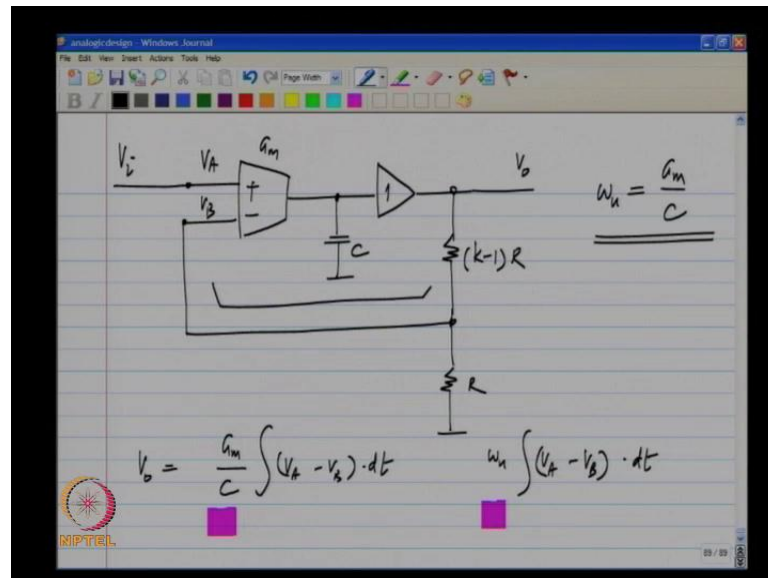 analogicdesign - Windows Journal
File Edit View Insert Actions Tools Help
Page Width
B I
V_i V_A G_m V_o
+ 1
V_B -
C
(k-1)R
R
ω_u = G_m / C
V_o = G_m / C ∫(V_A - V_B) · dt ω_u ∫(V_A - V_B) · dt
NPTEL
89 / 89